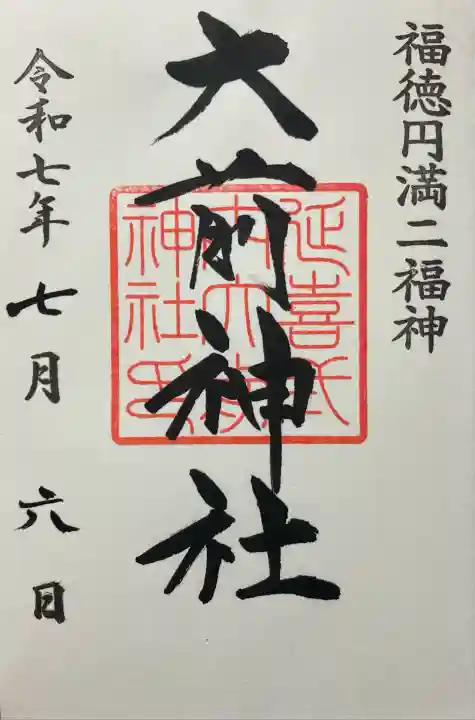 福徳円満二福神
大前神社
延喜式
内大前
神社印
令和七年七月六日